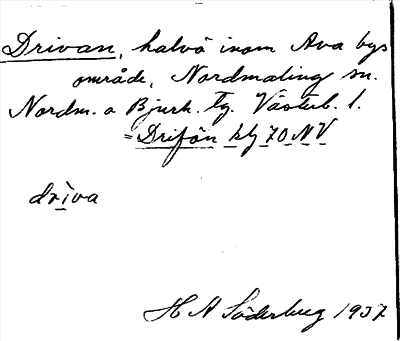 Drivan, halvö inom Ava bys
område, Nordmaling sn.
Nordm. o Bjurh. tg. Västerb. l.
= Drifön kbl 70 NV
driva
H A Söderberg 1937